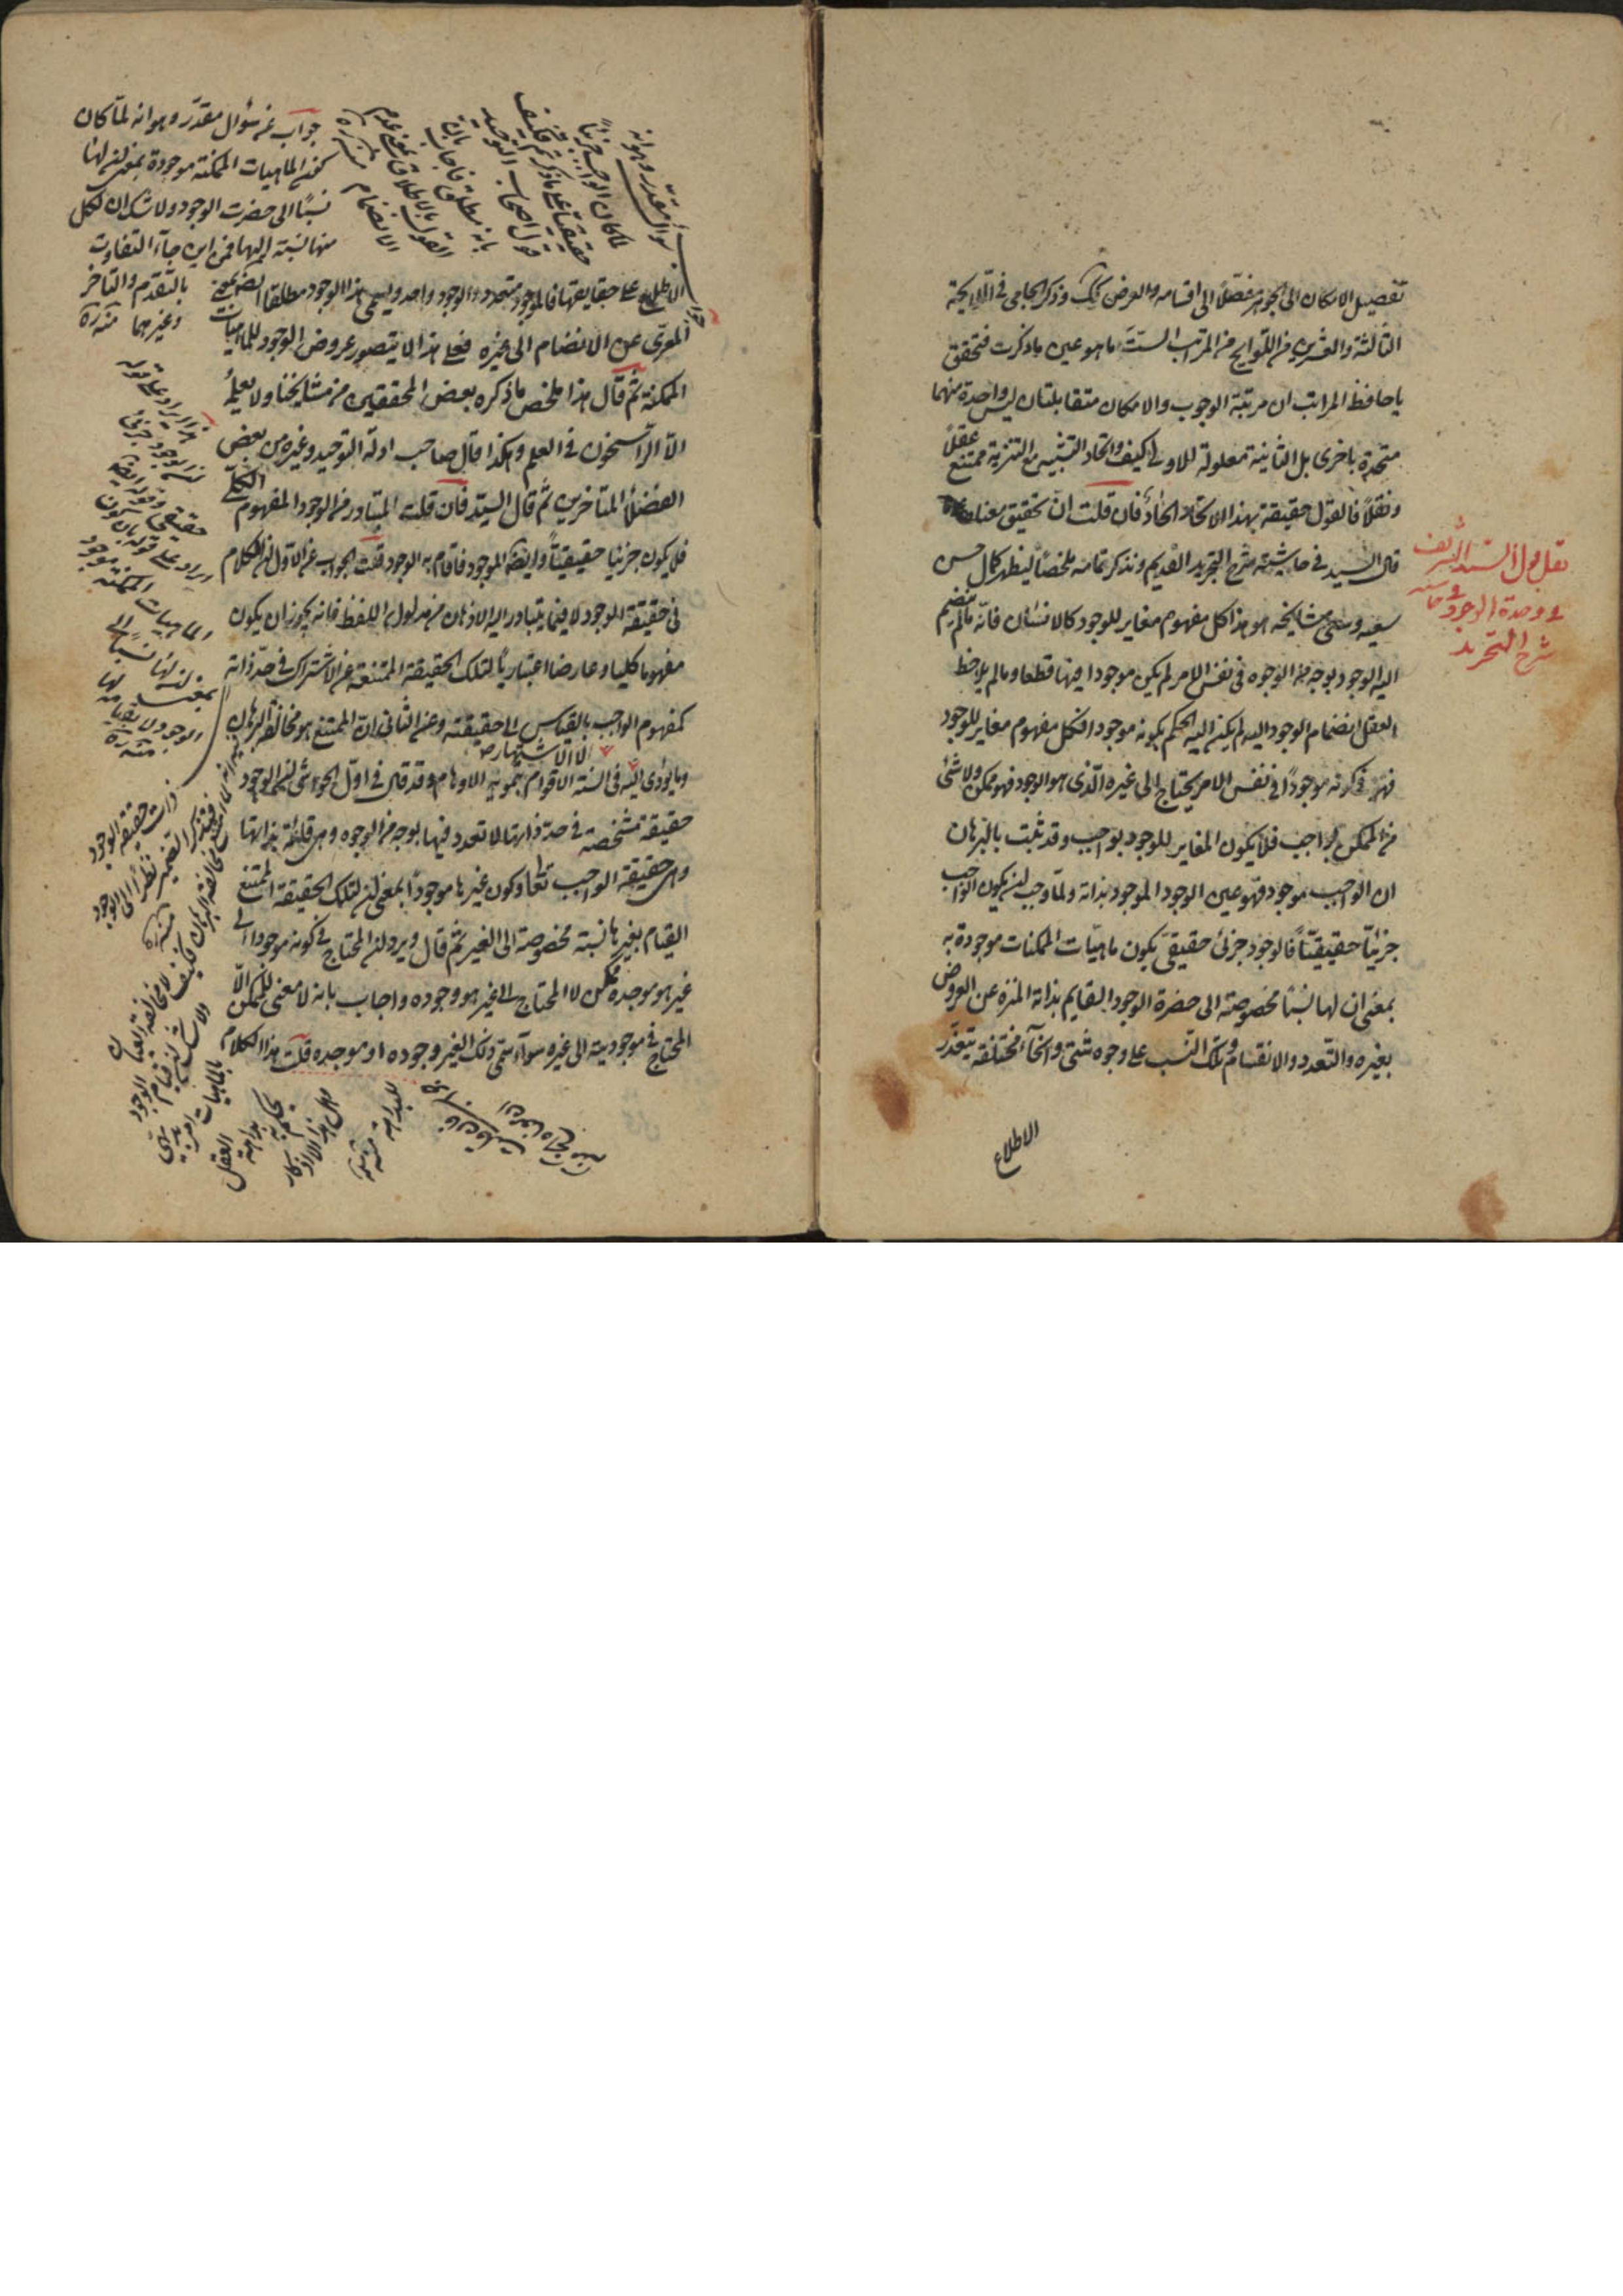 تفصيل الامكان الى الجوهر مفصّلا الى اقسامه والعرض كك وذكر الجامى فى اللايحة
الثالثة والعشرين من اللوايح من المراتب الستّ ما هو عين ما ذكرت فتحقق
يا حافظ المراتب ان مرتبة الوجوب والامكان متقابلتان ليس واحدة منهما
متحدة باخرى بل الثانية معلولة للاولى كيف واتحاد التشبيه مع التنزيه ممتنع عقلاً
ونقلاً فالقول حقيقة بهذا الاتحاد الحاد فان قلت ان تحقيق معناه
قال السيد فى حاشيته شرح التجريد القديم ونذكر تمامه ملخصاً ليظهر كمال حسن
سعيه وسعى مشايخه هو هذا كل مفهوم مغاير للوجود كالانسان فانّه ما لم ينضم
اليه الوجود بوجه من الوجوه فى نفس الامر لم يكن موجودا فيها قطعا وما لم يلاحظ
العقل انضمام الوجود اليه لم يكن اليه الحكم بكونه موجودا فكل مفهوم مغاير للوجود
فهو فى كونه موجوداً فى نفس الامر يحتاج الى غيره الّذى هو الوجود فهو ممكن ولا شئ
من الممكن بواجب فلا يكون المغاير للوجود بواجب وقد ثبت بالبرهان
ان الواجب موجود فهو عين الوجود الموجود بذاته ولمّا وجب ان يكون الواجب
جزئياً حقيقيّاً فالوجود جزئ حقيقى يكون ماهيّات الممكنات موجودة به
بمعنى ان لها نسبًا مخصوصة الى حضرة الوجود القايم بذاته المنزه عن العروض
بغيره والتعدد والانقسام وتلك النسب على وجوه شتى وانحآء مختلفة يتعذّر
الاطلاع
نقل قول السيد الشريف
فى وحدة الوجود فى حاشية
شرح التجريد
جواب عن سؤال مقدّر وهو انه لمّا كان
الماهيات الممكنة موجودة بمعنى ان لها
نسبًا الى حضرت الوجود ولا شك ان لكل
منها نسبة اليها فمن اين جآء التفاوت
بالتقدم والتأخر
وغيرهما منه ره
سؤال مقدّر وهو انه
لما كان الواجب جزئياً
حقيقيا على ما ذكرتم فكيف
قول اصحاب التوحيد
بانه مطلق فاجاب بان
القول بالاطلاق بمعنى عدم
الانضمام منه ره
الاطلاع على حقايقها فالموجود متعدد والوجود واحد ويسمى هذا الوجود مطلقا ايضا بمعنى
المعرّى عن الانضمام الى غيره فعلى هذا لا يتصور عروض الوجود للماهيات
الممكنة ثم قال هذا ملخص ما ذكره بعض المحققين من مشايخنا ولا يعلمه
الا الراسخون فى العلم وهكذا قال صاحب ادلة التوحيد وغيره من بعض
الفضلأ المتاخرين ثم قال السيّد فان قلت المتبادر من الوجود المفهوم الكلّى
فلا يكون جزئيا حقيقيّاً وايضا الموجود ما قام به الوجود قلت الجواب عن الاول ان الكلام
فى حقيقة الوجود لا فيما يتبادر اليه الاذهان من مدلول اللفظ فانه يجوز ان يكون
مفهوما كليا وعارضا اعتبارياً لتلك الحقيقة الممتنعة عن الاشتراك فى حدّ ذاته
كمفهوم الواجب بالقياس الى حقيقته وعن الثانى ان الممتنع هو مخالفة البرهان
لا الاشتهار
وما يؤدى اليه فى السنة الاقوام بتمويه الاوهام وقد قال فى اول الحواشى ان الوجود
حقيقة مشخصة فى حدّ ذاتها لا تعدد فيها بوجه من الوجوه وهى قائمة بذاتها
وهى حقيقة الواجب تعا وكون غيرها موجوداً بمعنى ان لتلك الحقيقة الممتنع
القيام بغيرها نسبة مخصوصة الى الغير ثمّ قال ويرد ان المحتاج فى كونه موجودا الى
غير هو موجده ممكن لا المحتاج الى غير هو وجوده واجاب بانه لا معنى للممكن الّا
المحتاج فى موجوديته الى غيره سوآء سمى ذلك الغير وجوده او موجده قلت هذا الكلام
هذا ايراد على قوله
ان الوجود جزئى
حقيقى وقوله ايضا
ايراد على قوله بان يكون
الماهيات الممكنة موجود
بمعنى ان لها نسبا الى
الوجود
منه ره
ذات حقيقة الوجود
فتذكير الضمير نظرًا الى الوجود
منه ره